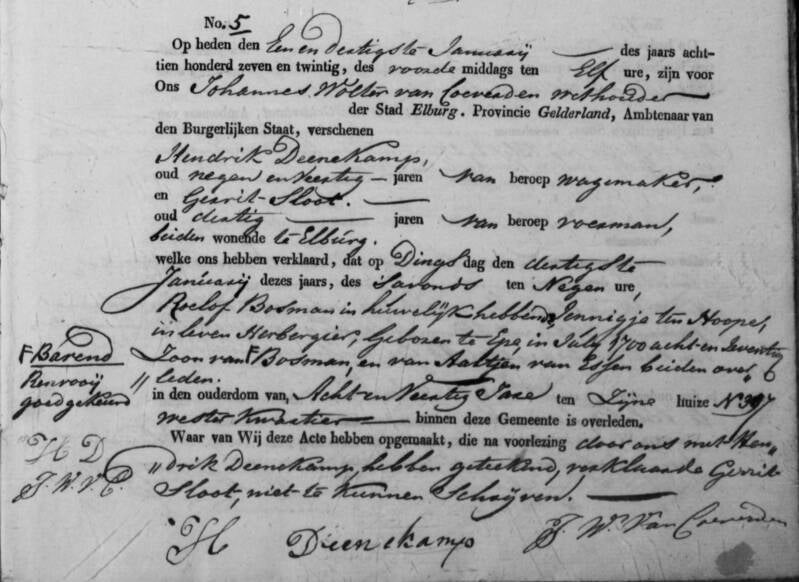 No. 5
Op heden den Een en dertigste Januarij des jaars acht-
tien honderd zeven en twintig, des voorde middags ten Elf ure, zijn voor
Ons Johannes Wolter van Coeverden wethouder
der Stad Elburg. Provincie Gelderland, Ambtenaar van
den Burgerlijken Staat, verschenen
Hendrik Deenekamp,
oud negen en Veertig jaren van beroep wagemaker,
en Gerrit Sloot.
oud dertig jaren van beroep voerman,
beiden wonende te Elburg.
welke ons hebben verklaard, dat op Dingsdag den dertigste
Januarij dezes jaars, des Savonds ten Negen ure,
Roelof Bosman in huwelijk hebbende Jennigje ten Hoope,
in leven Herbergier, Geboren te Epe, in July 1700 acht en Zeventig
Zoon van F Bosman, en van Aaltjen van Essen beiden over
„ leden.
in den ouderdom van, Acht en Veertig Jare ten Zijne huize No 397
wester Kwartier binnen deze Gemeente is overleden.
Waar van Wij deze Acte hebben opgemaakt, die na voorlezing door ons met Hen„
„drik Deenekamp, hebben geteekend, verklaarde Gerrit
Sloot, niet te kunnen Schrijven.
F Barend
Renvooij
goedgekeurd
H D
J. W. v. C.
H Deenekamp
J. W. Van Coeverden